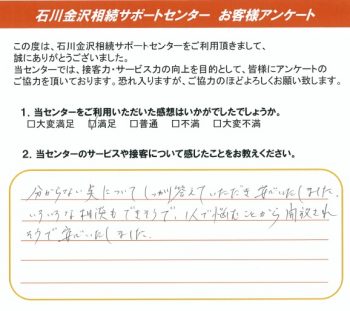 石川金沢相続サポートセンター お客様アンケート
この度は、石川金沢相続サポートセンターをご利用頂きまして、
誠にありがとうございました。
当センターでは、接客力・サービス力の向上を目的として、皆様にアンケートの
ご協力を頂いております。恐れ入りますが、ご協力のほどよろしくお願い致します。
1. 当センターをご利用いただいた感想はいかがでしたでしょうか。
□大変満足 ☑満足 □普通 □不満 □大変不満
2. 当センターのサービスや接客について感じたことをお教えください。
分からない点についてしっかり答えていただき安心いたしました。
いろいろな相談もできそうで、1人で悩むことから開放され
そうで安心いたしました。